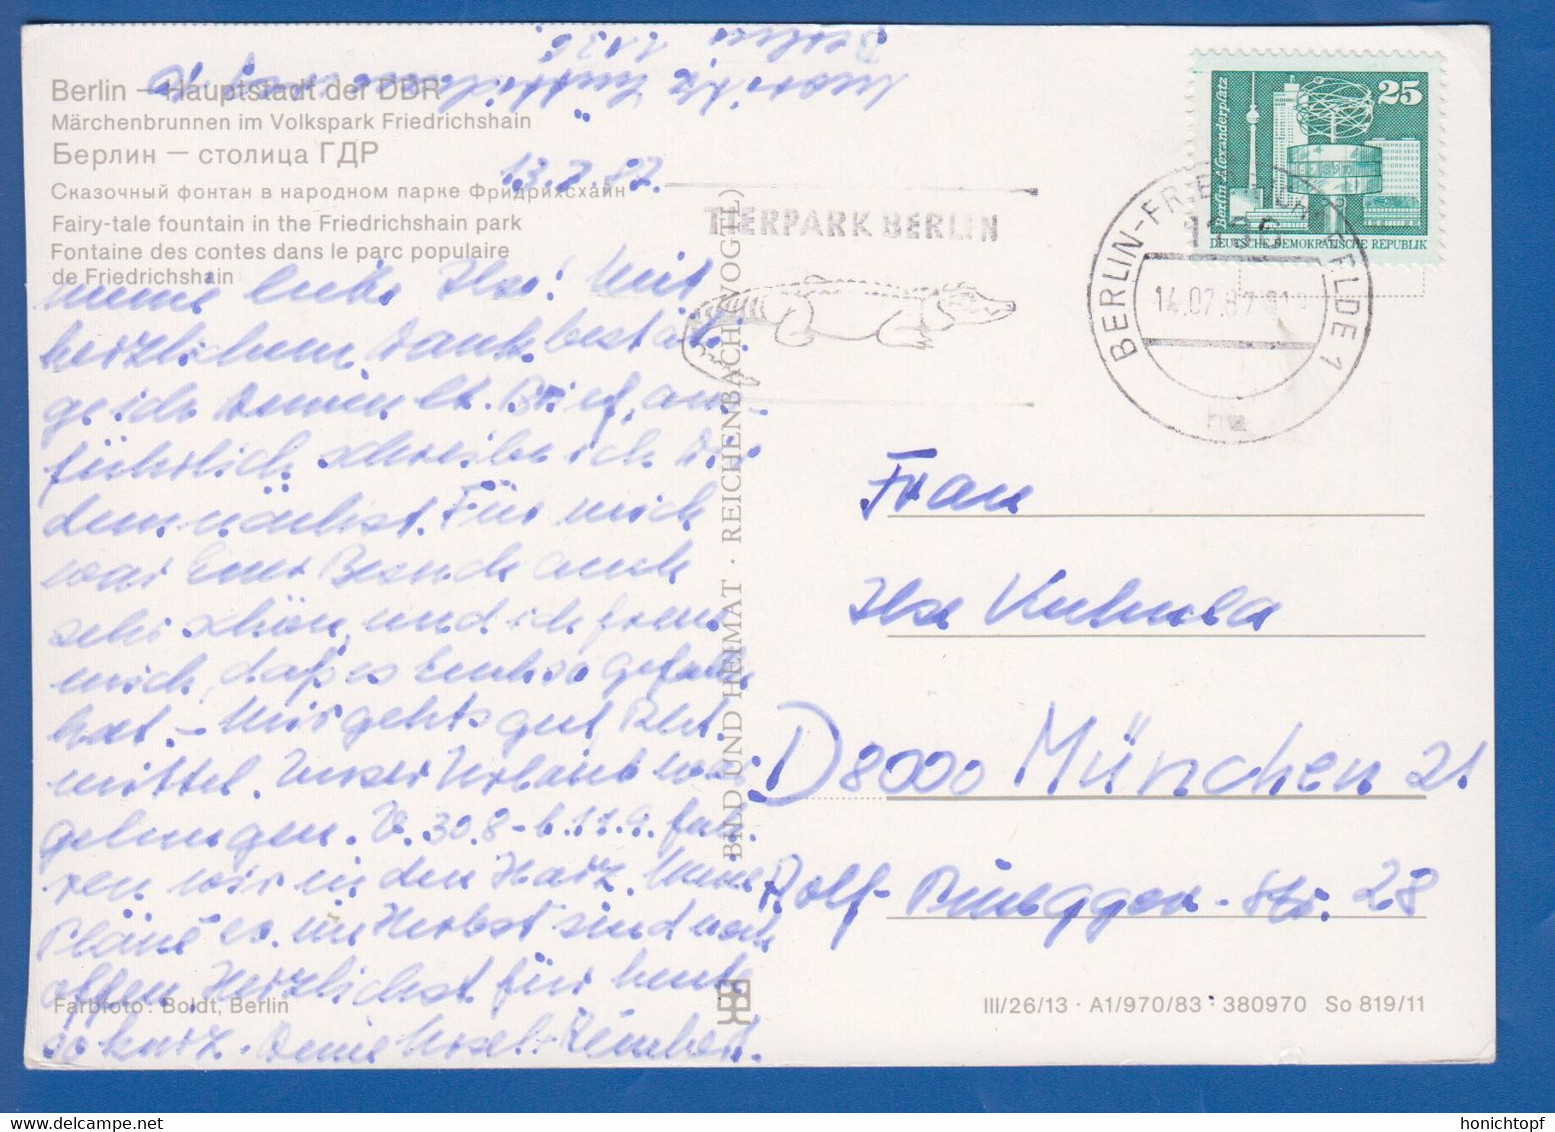 Berlin – Hauptstadt der DDR
Märchenbrunnen im Volkspark Friedrichshain
Берлин – столица ГДР
Сказочный фонтан в народном парке Фридрихсхайн
Fairy-tale fountain in the Friedrichshain park
Fontaine des contes dans le parc populaire
de Friedrichshain
Berlin 1136
13.7.87.
meine liebe Ilse! Mit
herzlichem Dank bestäti-
ge ich Deinen lb. Brief, aus-
führlich schreibe ich Dir
demnächst. Für mich
war Euer Besuch auch
sehr schön, und ich freue
mich, daß es Euch so gefallen
hat. – Mir geht's gut, 
mittel. Unser Urlaub war
gelungen. V. 30.8 – b. 11.9. fah-
ren wir in den Harz. Meine
Pläne im Herbst sind noch
offen. Herzlichst für heute
so kurz. Deine Ursel +
BILD UND HEIMAT · REICHENBACH (VOGTL)
TIERPARK BERLIN
BERLIN-FRIEDRICHSFELDE 1
1136
14.07.87
25
Berlin-Alexanderplatz
DEUTSCHE DEMOKRATISCHE REPUBLIK
Frau
Ilse Kuhnla
D 8000 München 21
Agnolf- -Str. 28
Farbfoto: Boldt, Berlin
III/26/13 · A1/970/83 · 380970 So 819/11
honichtopf